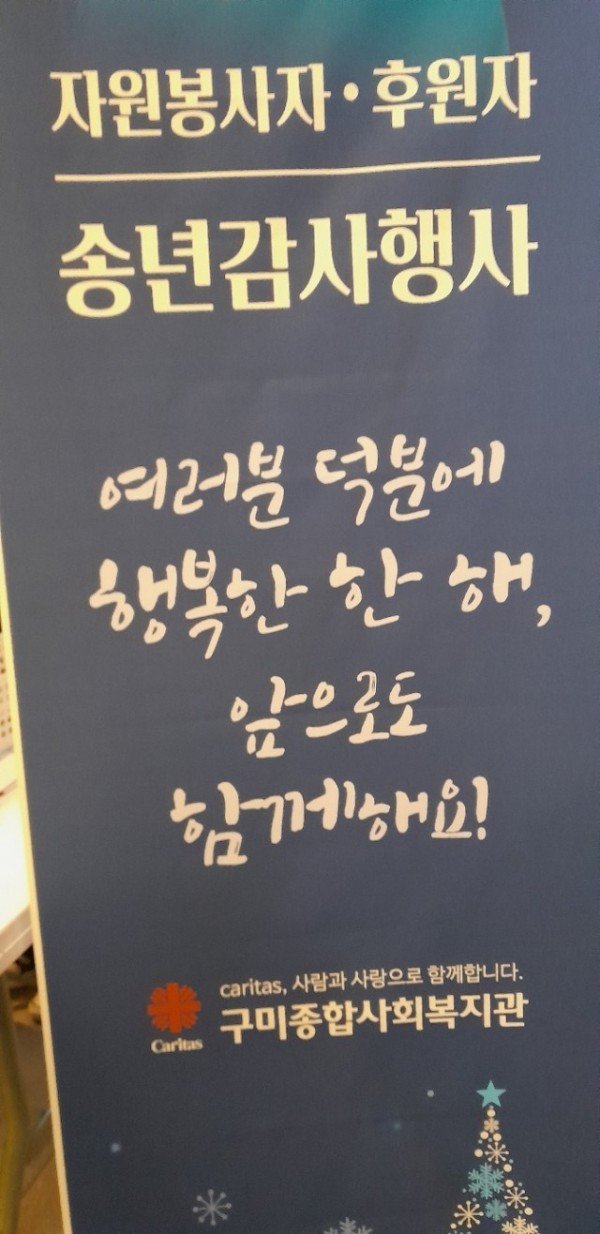 자원봉사자·후원자
송년감사행사
여러분 덕분에
행복한 한 해,
앞으로도
함께해요!
caritas, 사람과 사랑으로 함께합니다.
구미종합사회복지관
Caritas